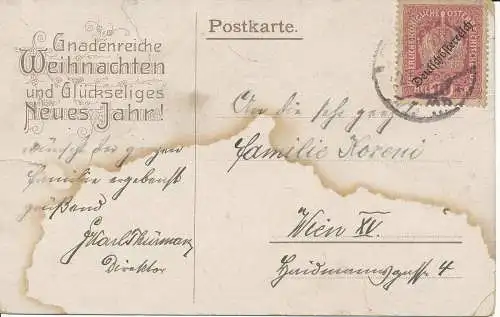 Gnadenreiche
Weihnachten
und Glückseliges
Neues Jahr!
wünscht der ganzen
Familie ergebenst
grüßend
Karl Thürmann
Direktor
Postkarte.
Deutschösterreich
An die sehr geehrte
Familie Koreni
Wien XV.
Haidmannsgasse 4